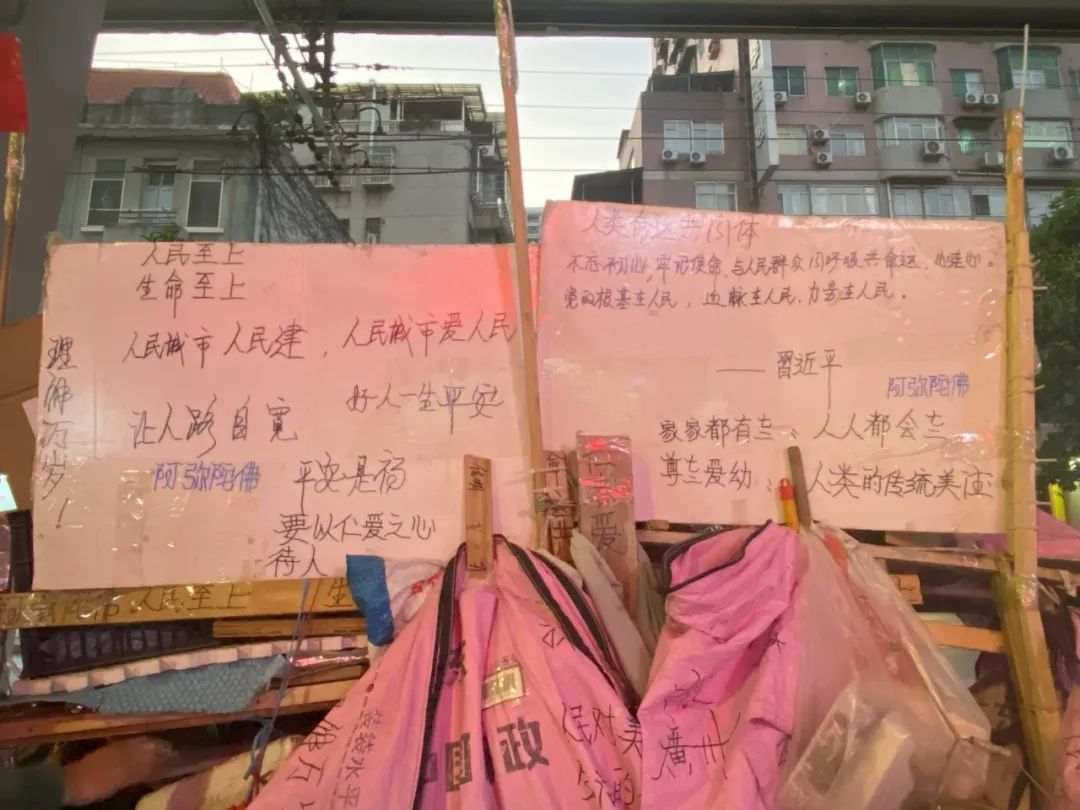 人民至上
生命至上
人民城市人民建，人民城市爱人民
好人一生平安
让人路自宽
阿弥陀佛
平安是福
要以仁爱之心
待人
理佛万岁！
人类命运共同体
不忘初心，牢记使命，与人民群众同呼吸共命运，心连心。
党的根基在人民，血脉在人民，力量在人民。
——習近平
阿弥陀佛
家家都有老、人人都会老
尊老爱幼、人类的传统美德
人民至上
生
爱
廣州